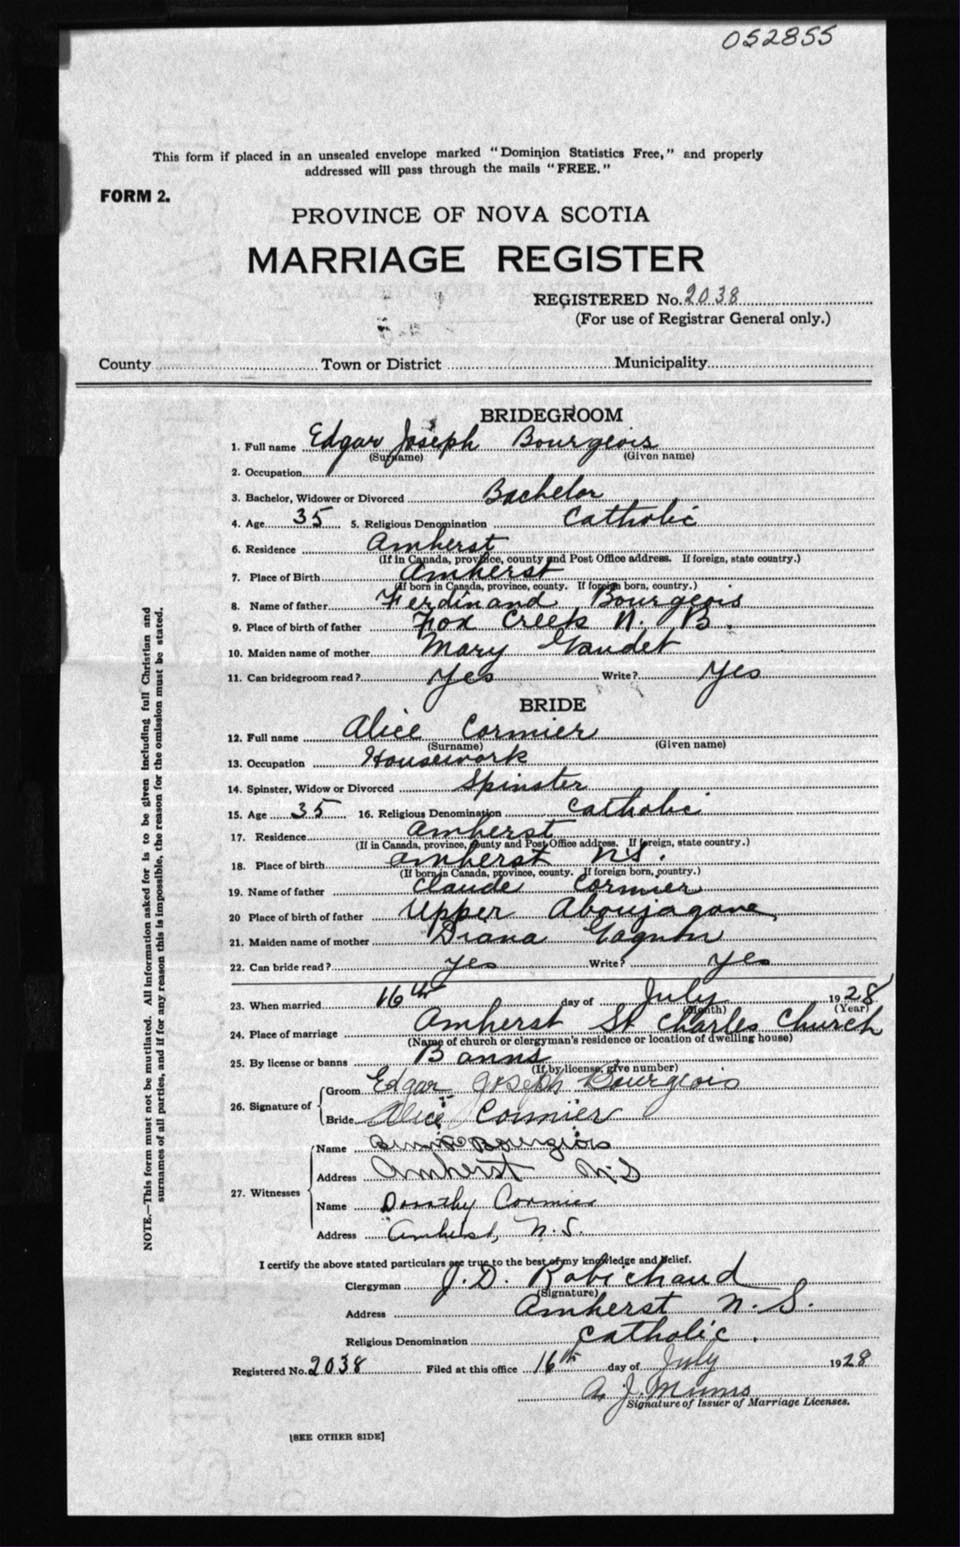 052855
This form if placed in an unsealed envelope marked "Dominion Statistics Free," and properly
addressed will pass through the mails "FREE."
FORM 2.
PROVINCE OF NOVA SCOTIA
MARRIAGE REGISTER
REGISTERED No. 2038
(For use of Registrar General only.)
County Town or District Municipality
BRIDEGROOM
1. Full name Edgar Joseph Bourgeois
(Surname) (Given name)
2. Occupation
3. Bachelor, Widower or Divorced Bachelor
4. Age 35 5. Religious Denomination Catholic
6. Residence Amherst
(If in Canada, province, county and Post Office address. If foreign, state country.)
7. Place of Birth Amherst
(If born in Canada, province, county. If foreign born, country.)
8. Name of father Ferdinand Bourgeois
9. Place of birth of father Fox Creek N. B.
10. Maiden name of mother Mary Gaudet
11. Can bridegroom read? Yes Write? Yes
BRIDE
12. Full name Alice Cormier
(Surname) (Given name)
13. Occupation Housework
14. Spinster, Widow or Divorced Spinster
15. Age 35 16. Religious Denomination Catholic
17. Residence Amherst
(If in Canada, province, county and Post Office address. If foreign, state country.)
18. Place of birth Amherst N.S.
(If born in Canada, province, county. If foreign born, country.)
19. Name of father Claude Cormier
20 Place of birth of father Upper Aboujagane
21. Maiden name of mother Diana Gagnon
22. Can bride read? Yes Write? Yes
23. When married 16th day of July 1928
(Month) (Year)
24. Place of marriage Amherst St Charles Church
(Name of church or clergyman's residence or location of dwelling house)
25. By license or banns Banns
(If by license, give number)
26. Signature of
Groom Edgar Joseph Bourgeois
Bride Alice Cormier
27. Witnesses
Name Bourgeois
Address Amherst N.S
Name Dorothy Cormier
Address Amherst, N.S.
I certify the above stated particulars are true to the best of my knowledge and belief.
Clergyman J. D. Robichaud
(Signature)
Address Amherst N. S.
Religious Denomination Catholic.
Registered No. 2038 Filed at this office 16th day of July 1928
A. J.
Signature of Issuer of Marriage Licenses.
[SEE OTHER SIDE]
NOTE.—This form must not be mutilated. All information asked for is to be given including full Christian and
surnames of all parties, and if for any reason this is impossible, the reason for the omission must be stated.